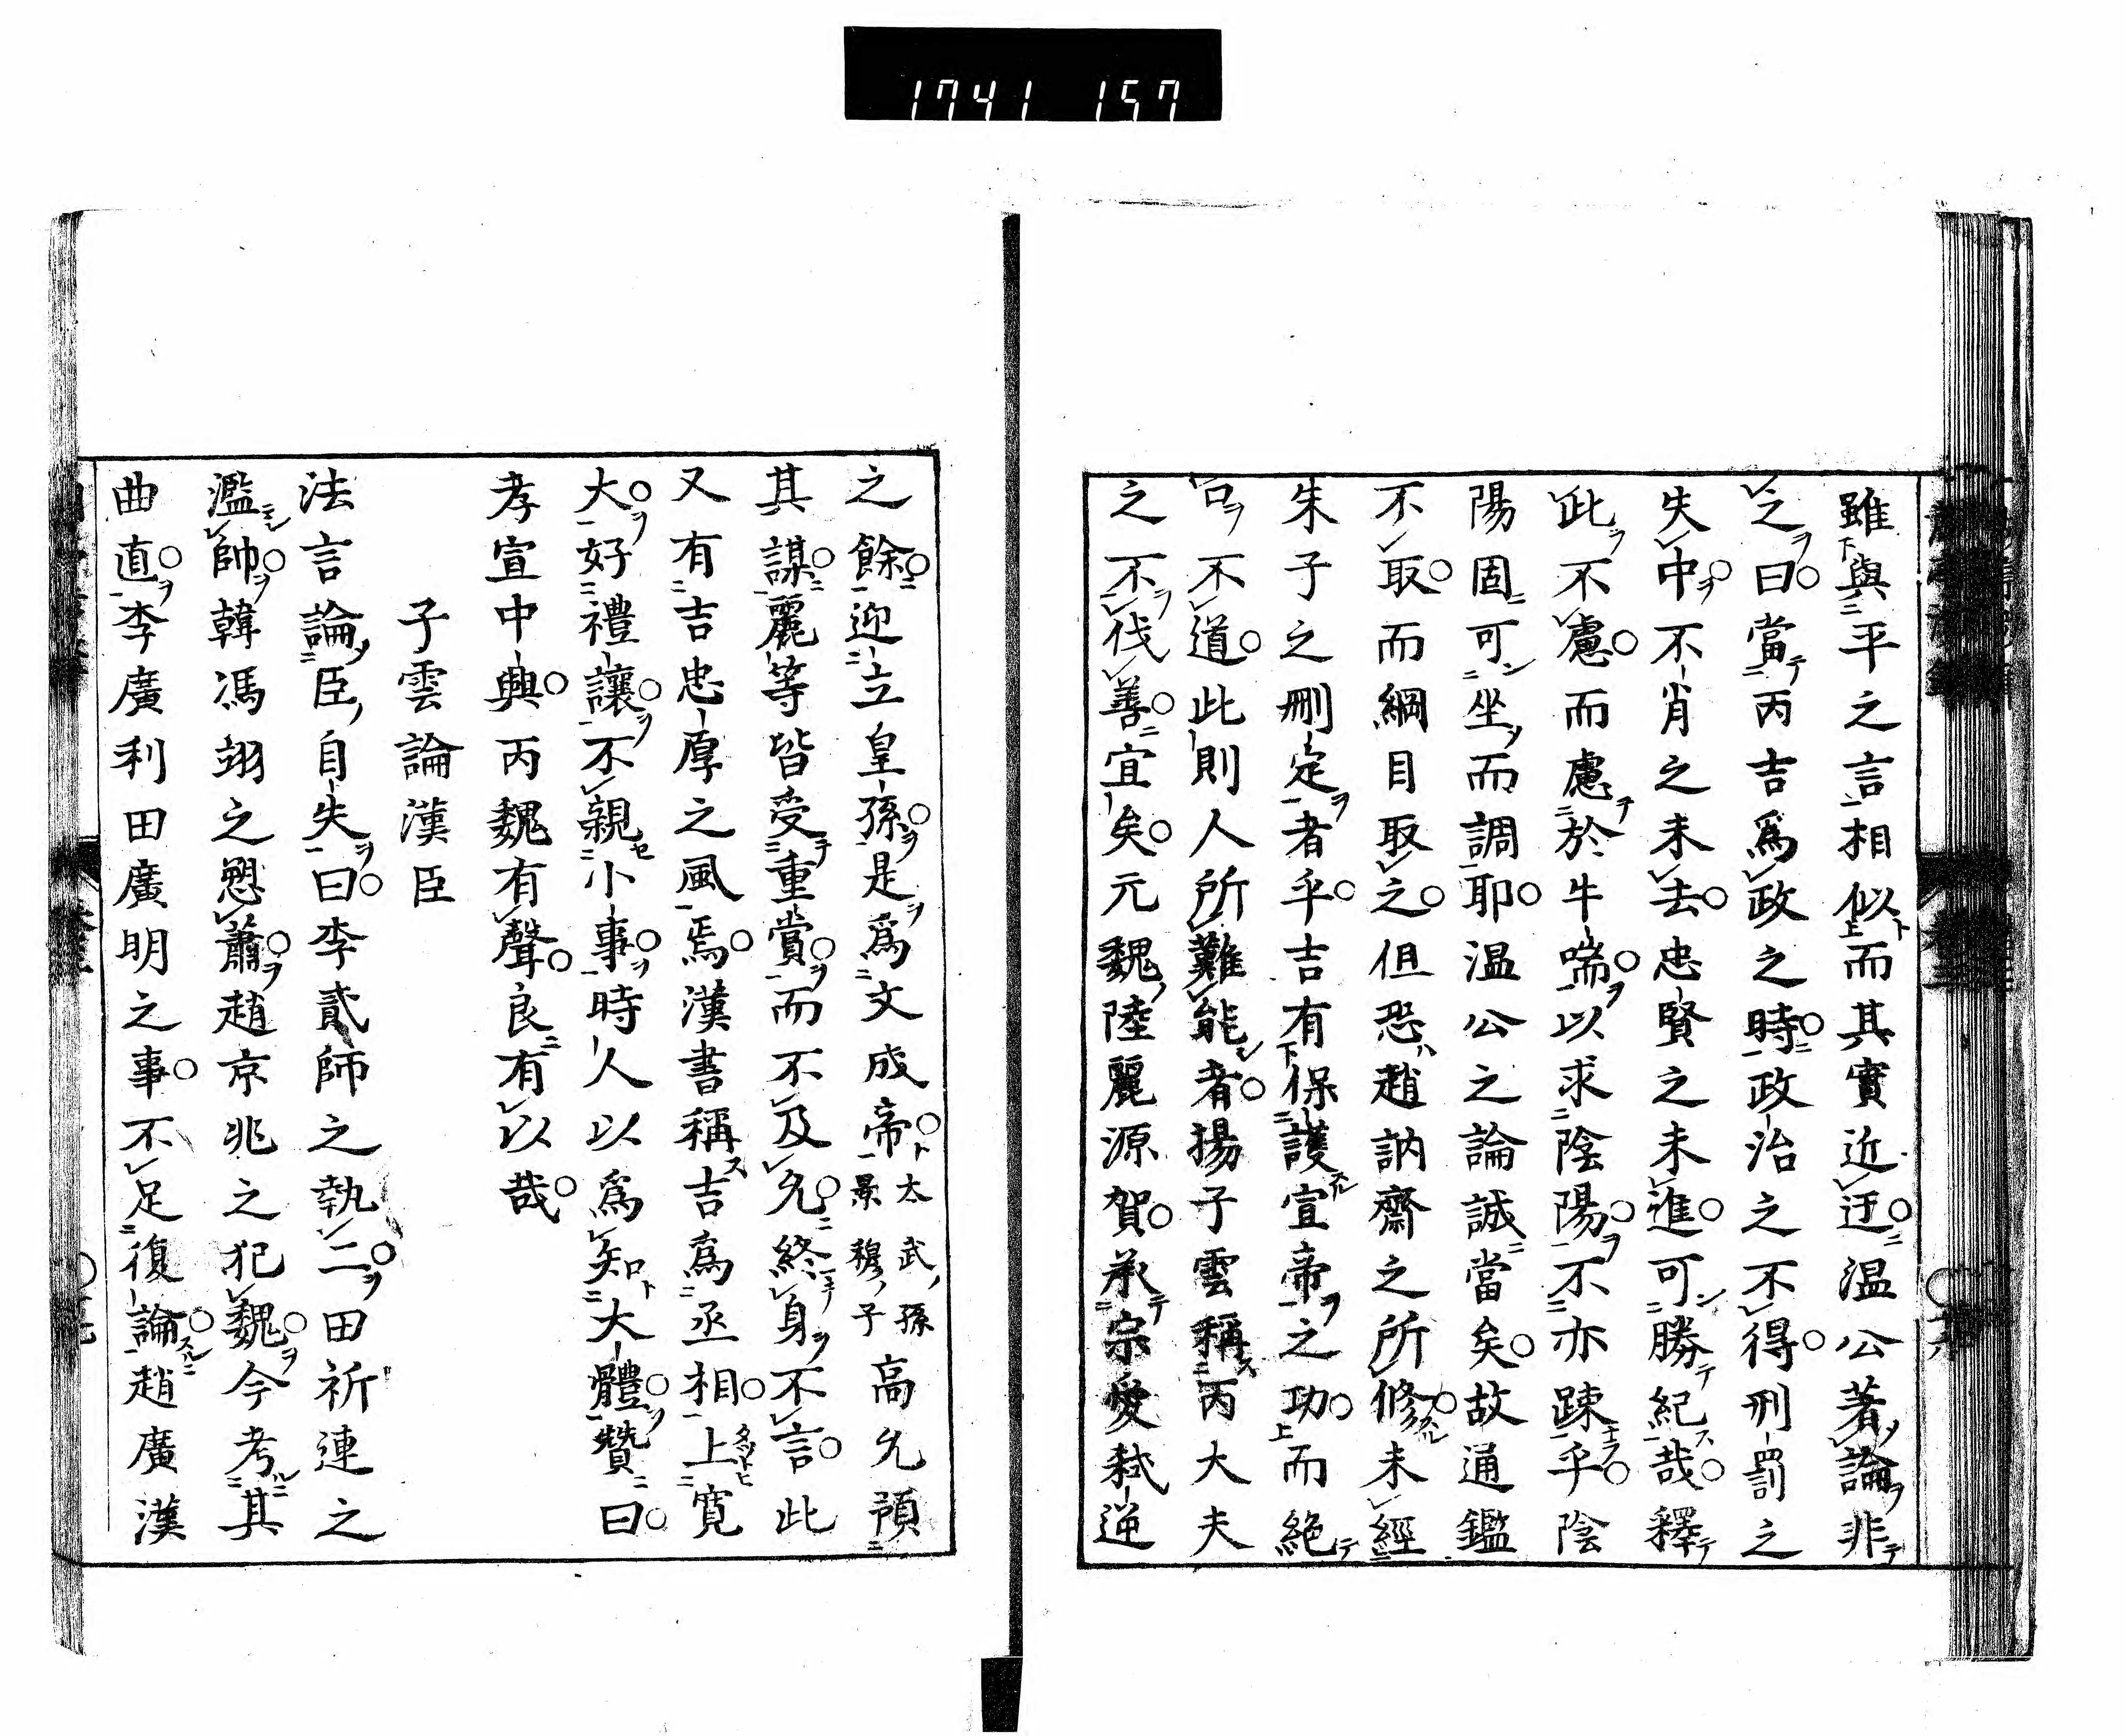 1741 157
雖與平之言相似而其實近迂溫公著論非
之曰當丙吉爲政之時政治之不得刑罰之
失中不肖之未去忠賢之未進可勝紀哉釋
此不慮而慮於牛喘以求陰陽不亦踈乎陰
陽固可坐而調耶温公之論誠當矣故通鑑
不取而綱目取之但恐趙訥齋之所修未經
朱子之刪定者乎吉有保護宣帝之功而絶
口不道此則人所難能者揚子雲稱丙大夫
之不伐善宜矣元魏陸麗源賀承宗愛弑逆
之餘迎立皇孫是爲文成帝太武孫景穆子高允預
其謀麗等皆受重賞而不及允終身不言此
又有吉忠厚之風焉漢書稱吉爲丞相上寬
大好禮讓不親小事時人以爲知大體贊曰
孝宣中興丙魏有聲良有以哉
子雲論漢臣
法言論臣自失曰李貳師之執二田祈連之
濫帥韓馮翊之愬蕭趙京兆之犯魏今考其
曲直李廣利田廣明之事不足復論趙廣漢